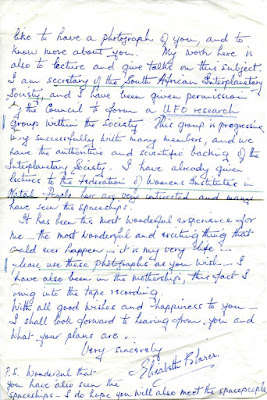 like to have a photograph of you, and to
know more about you. My work here is
also to lecture and give talks on this subject.
I am secretary of the South African Interplanetary
Society, and I have been given permission
by the Council to form a UFO research
group within the Society. This group is progressing
very successfully with many members, and we
have the authoritive and scientific backing of the
Interplanetary Society. I have already given
lectures to the Federation of Womens Institutes in
Natal. People here are so interested and many
have seen the spaceships.
It has been the most wonderful experience for
me — the most wonderful and exciting thing that
could ever happen — it is my very life!
— please use these photographs as you wish. — I
have also been in the mothership, this fact I
into the tape recording
With all good wishes and happiness to you —
I shall look forward to hearing from you and
what your plans are...
Very sincerely
Elizabeth Klarer.
P.S. Wonderful that
you have also seen the
spaceships — I do hope you will also meet the spacepeople